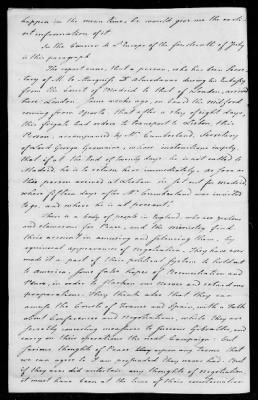 happen in the mean time, he would give me the earli-
est information of it.
In the Courier de l'Europe of the fourteenth of July
is this paragraph
The report runs, that a person, who has been Secre-
tary of M. le Marquis D'Almodovar during his Embassy
from the Court of Madrid to that of London, arrived
here London, some weeks ago, on board the Milford,
coming from Oporto that after a stay of eight days,
this frigate had orders to transport to Lisbon, this
Person, accompanied by Mr Cumberland, Secretary
of Lord George Germaine, whose instructions imply,
that if at the End of twenty days, he is not called to
Madrid, he is to return here immediately. As soon as
this person arrived at Lisbon, he set out for Madrid
where fifteen days after Mr Cumberland was invited
to go, and where he is at present.
There is a body of people in England, who are zealous
and clamorous for Peace, and the ministry find
their account in amusing and silencing them, by
equivocal appearances of Negotiation. They have ever
made it a part of their political System to hold out
to America, some false hopes of Reconciliation and
Peace, in order to slacken our nerves and retard our
preparations. They think also that they can
amuse the Courts of France and Spain, with a talk
about Conferences and negotiations, while they are
secretly concerting measures to succour Gibraltar, and
carry on their operations the next Campaign: but
serious thoughts of Peace upon any terms that
we can agree to I am persuaded they never had. But
if they ever did entertain any thoughts of negotiation
it must have been at the time of their consternation